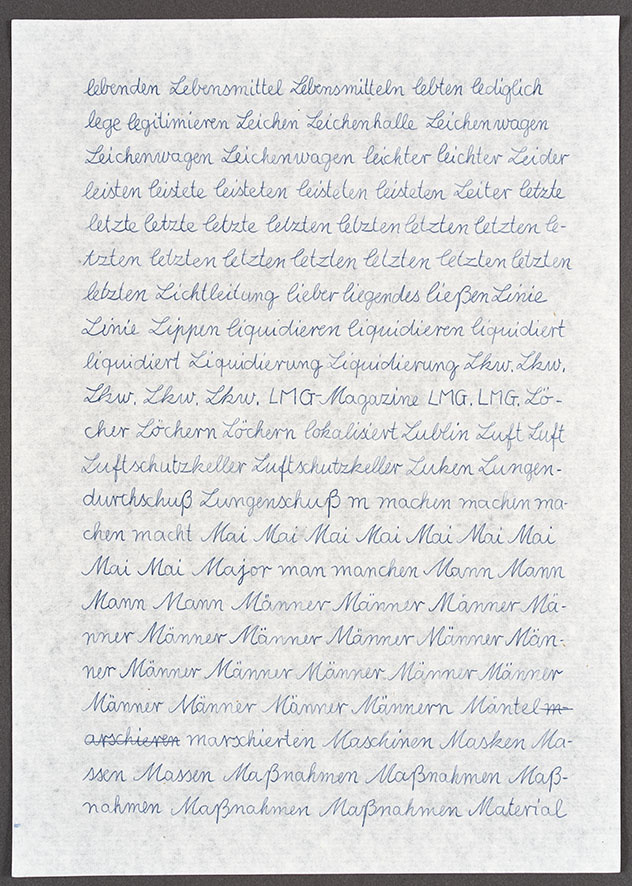 lebenden Lebensmittel Lebensmitteln lebten lediglich
lege legitimieren Leichen Leichenhalle Leichenwagen
Leichenwagen Leichenwagen leichter leichter Leider
leisten leistete leisteten leisteten leisteten Leiter letzte
letzte letzte letzte letzten letzten letzten letzten le-
tzten letzten letzten letzten letzten letzten letzten
letzten Lichtleitung lieber liegendes ließen Linie
Linie Lippen liquidieren liquidieren liquidiert
liquidiert Liquidierung Liquidierung Lkw. Lkw.
Lkw. Lkw. Lkw. LMG-Magazine LMG. LMG. Lö-
cher Löchern Löchern lokalisiert Lublin Luft Luft
Luftschutzkeller Luftschutzkeller Luken Lungen-
durchschuß Lungenschuß m machen machen ma-
chen macht Mai Mai Mai Mai Mai Mai Mai
Mai Mai Major man manchen Mann Mann
Mann Mann Männer Männer Männer Mä-
nner Männer Männer Männer Männer Män-
ner Männer Männer Männer Männer Männer
Männer Männer Männer Männern Mäntel m-
arschieren marschierten Maschinen Masken Ma-
ssen Massen Maßnahmen Maßnahmen Maß-
nahmen Maßnahmen Maßnahmen Material